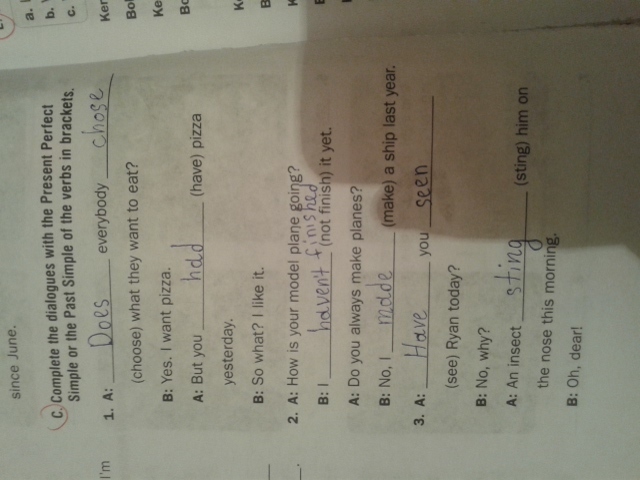 since June.
C. Complete the dialogues with the Present Perfect
Simple or the Past Simple of the verbs in brackets.
1. A: Does everybody chose
(choose) what they want to eat?
B: Yes. I want pizza.
A: But you had (have) pizza
yesterday.
B: So what? I like it.
2. A: How is your model plane going?
B: I havent finished (not finish) it yet.
A: Do you always make planes?
B: No, I made (make) a ship last year.
3. A: Have you seen
(see) Ryan today?
B: No, why?
A: An insect sting (sting) him on
the nose this morning.
B: Oh, dear!
I'm
a.
b.
c.
Ker
Bo
Ke
Bo